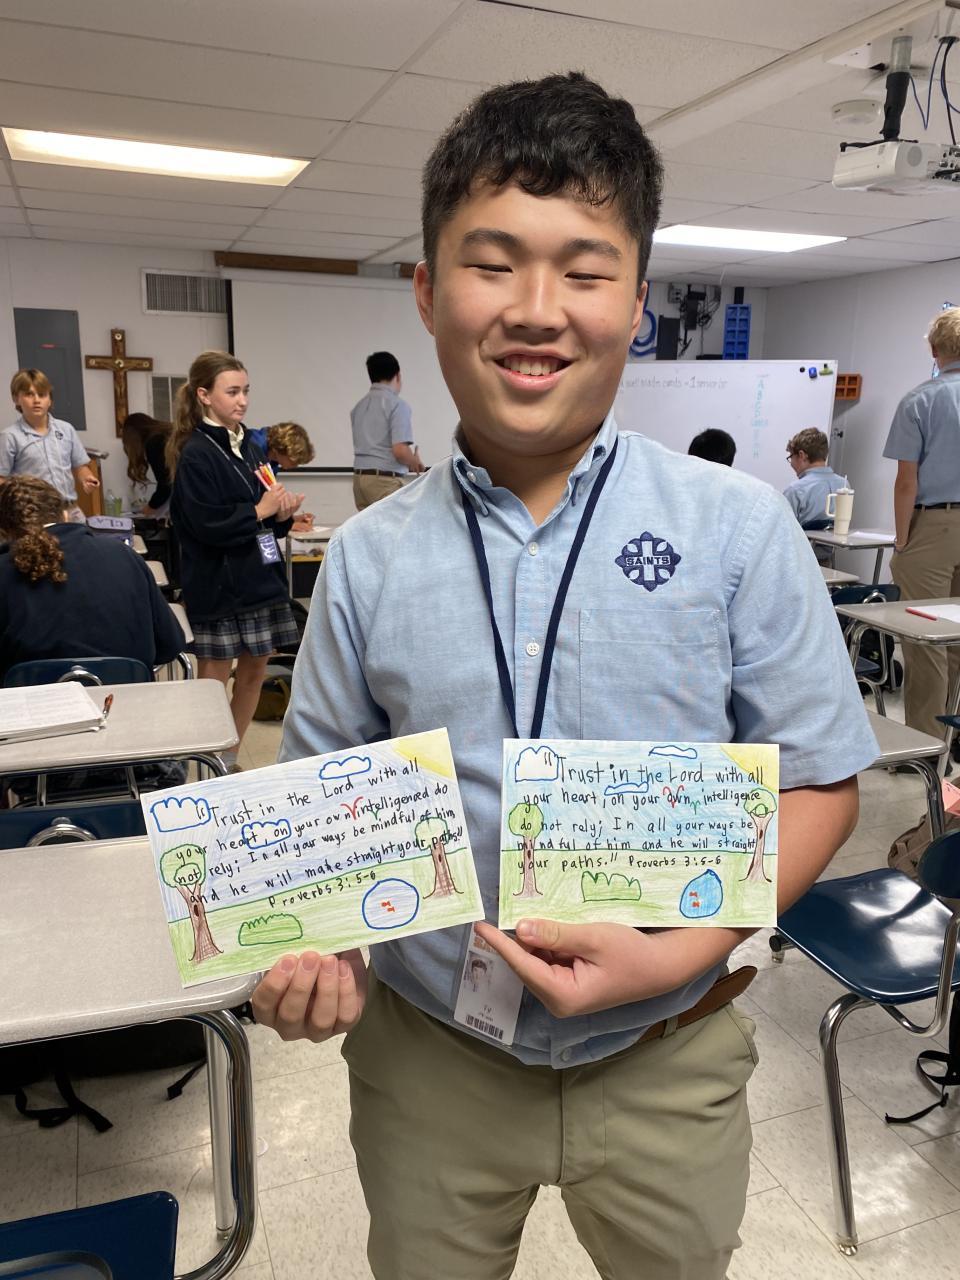 well made cards = 1 senior
SAINTS
CLA
"Trust in the Lord with all
your heart, on your own intelligenced do
not rely; In all your ways be mindful of him,
and he will make straight your paths."
Proverbs 3:5-6
"Trust in the Lord with all
your heart, on your own intelligence
do not rely; In all your ways be
mindful of him and he will straight
your paths." Proverbs 3:5-6